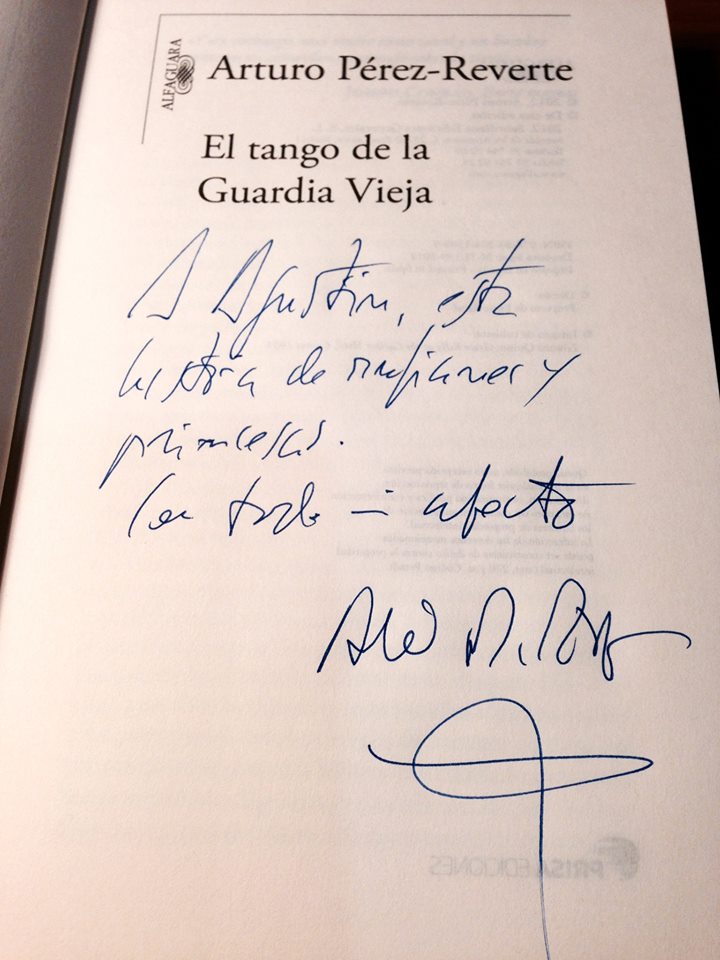 ALFAGUARA
Arturo Pérez-Reverte
El tango de la
Guardia Vieja
A Agustín, esta
historia de rufianes y
princesas.
Con todo mi afecto
PRISA EDICIONES